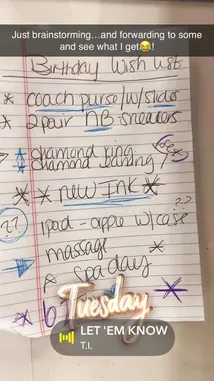 Just brainstorming...and forwarding to some
and see what I get😂!
Birthday Wish List
* coach purse/w/slides
* 2pair NB-sneakers
diamond ring
diamond barring
* * new Ink *
?? ipad - apple w/case ??
massage *
& spa day
Tuesday
LET 'EM KNOW
T.I.